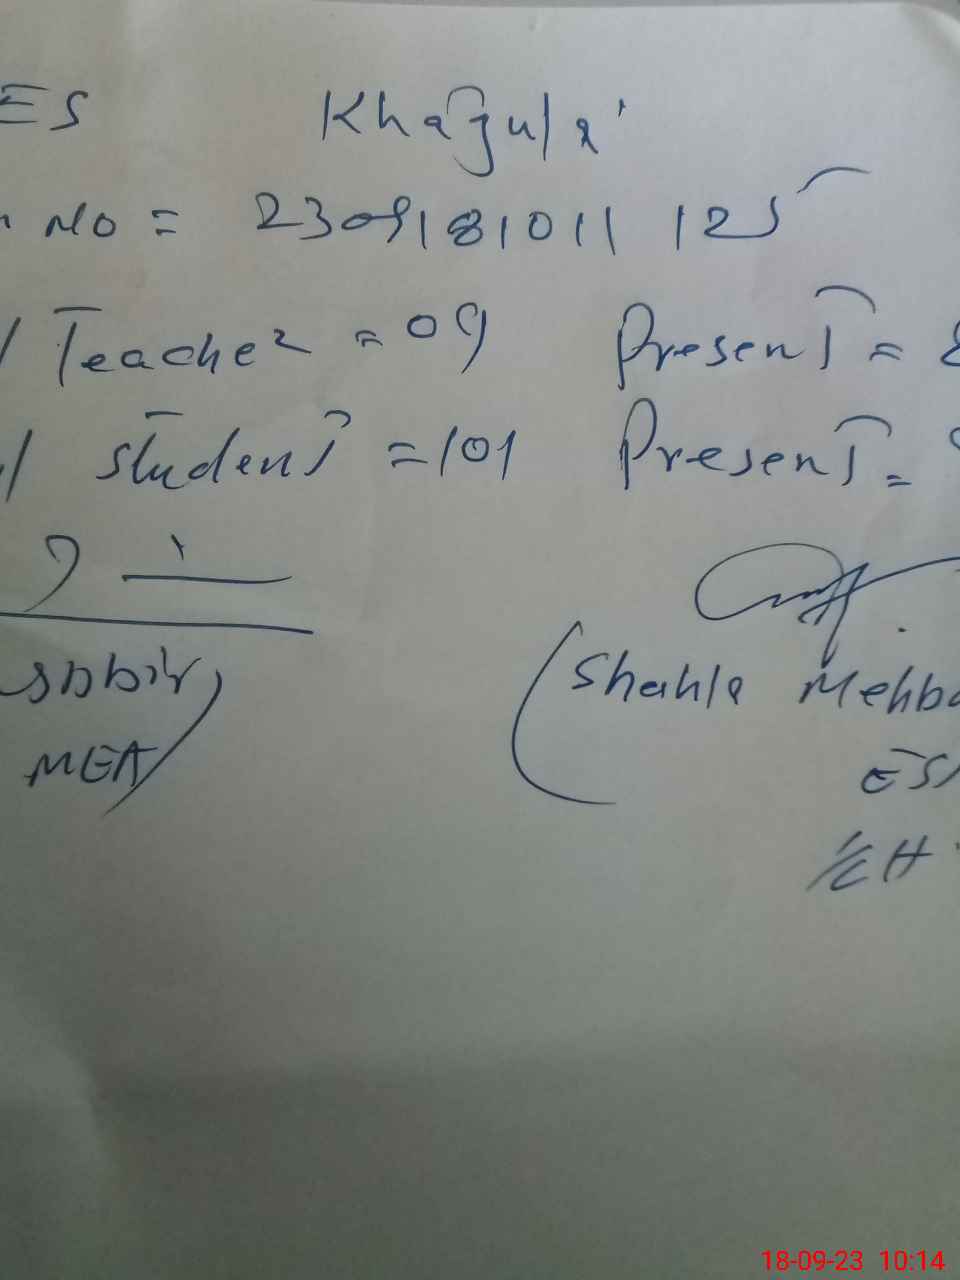 ES Khagulai
No = 2309181011 125
Teacher = 09 Present = 8
Student = 101 Present =
Shahla
MEA
ES
EH
18-09-23 10:14